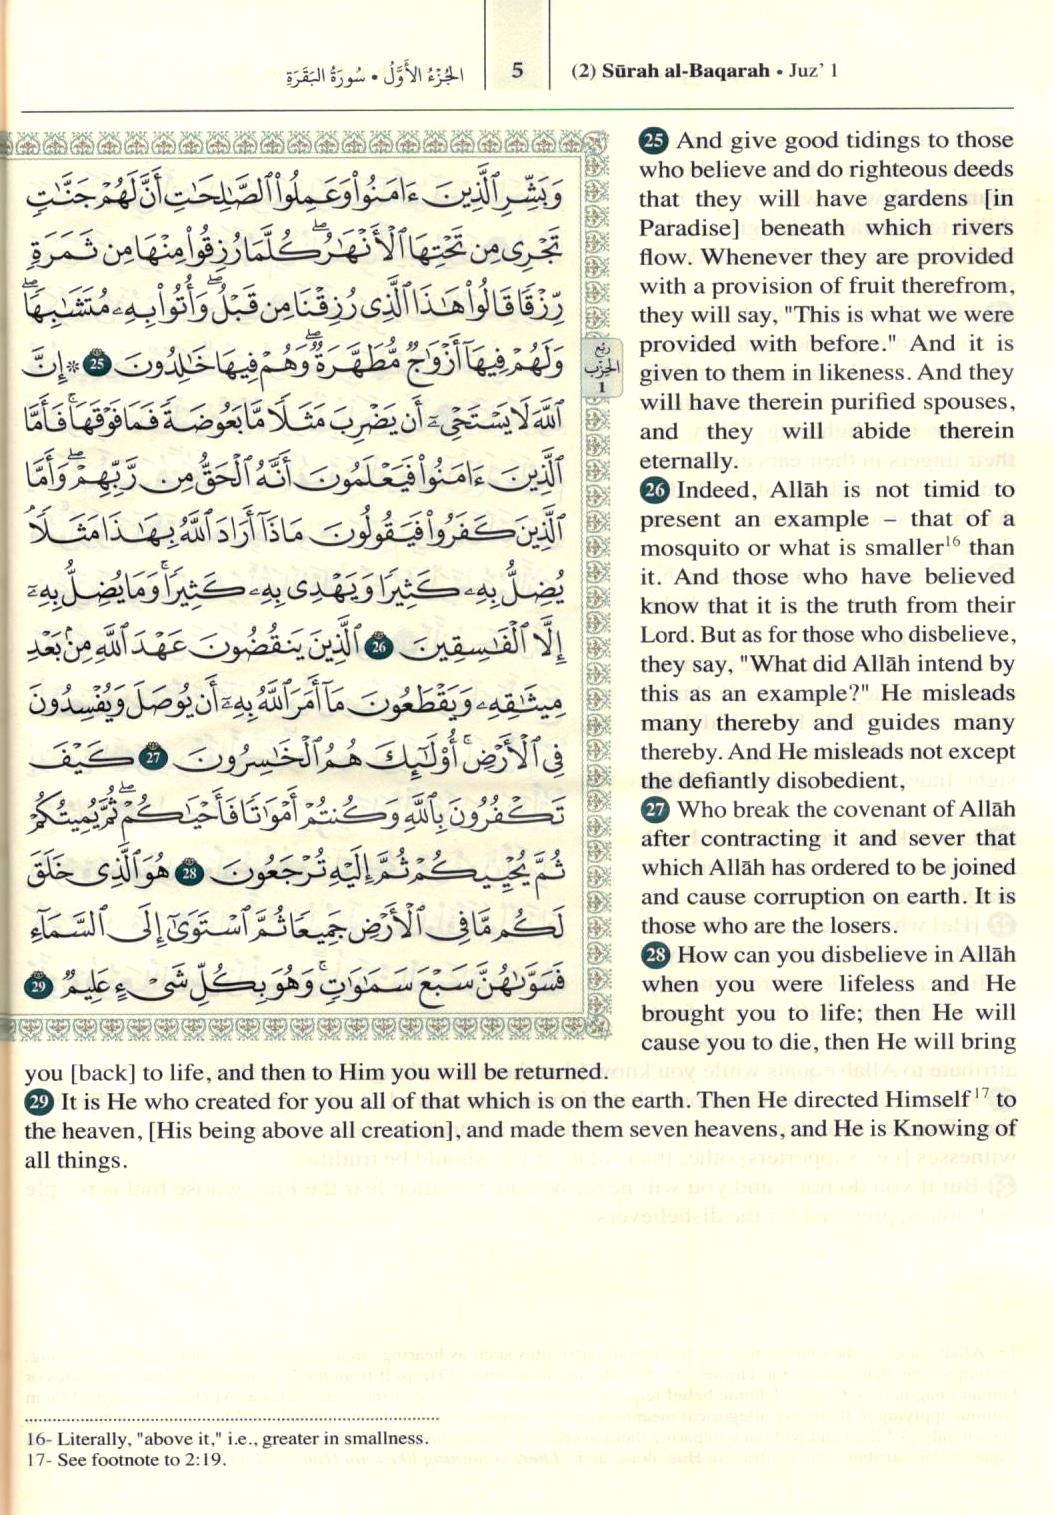 الجُزْءُ الأَوَّلُ • سُورَةُ البَقَرَةِ
5
(2) Sūrah al-Baqarah • Juz’ 1
وَبَشِّرِ ٱلَّذِينَ ءَامَنُوا۟ وَعَمِلُوا۟ ٱلصَّٰلِحَٰتِ أَنَّ لَهُمْ جَنَّٰتٍ
تَجْرِى مِن تَحْتِهَا ٱلْأَنْهَٰرُ ۖ كُلَّمَا رُزِقُوا۟ مِنْهَا مِن ثَمَرَةٍ
رِّزْقًا قَالُوا۟ هَٰذَا ٱلَّذِى رُزِقْنَا مِن قَبْلُ ۖ وَأُتُوا۟ بِهِۦ مُتَشَٰبِهًا ۖ
وَلَهُمْ فِيهَآ أَزْوَٰجٌ مُّطَهَّرَةٌ ۖ وَهُمْ فِيهَا خَٰلِدُونَ 25 * إِنَّ
ٱللَّهَ لَا يَسْتَحْىِۦٓ أَن يَضْرِبَ مَثَلًا مَّا بَعُوضَةً فَمَا فَوْقَهَا ۚ فَأَمَّا
ٱلَّذِينَ ءَامَنُوا۟ فَيَعْلَمُونَ أَنَّهُ ٱلْحَقُّ مِن رَّبِّهِمْ ۖ وَأَمَّا
ٱلَّذِينَ كَفَرُوا۟ فَيَقُولُونَ مَاذَآ أَرَادَ ٱللَّهُ بِهَٰذَا مَثَلًا ۘ
يُضِلُّ بِهِۦ كَثِيرًا وَيَهْدِى بِهِۦ كَثِيرًا ۚ وَمَا يُضِلُّ بِهِۦٓ
إِلَّا ٱلْفَٰسِقِينَ 26 ٱلَّذِينَ يَنقُضُونَ عَهْدَ ٱللَّهِ مِنۢ بَعْدِ
مِيثَٰقِهِۦ وَيَقْطَعُونَ مَآ أَمَرَ ٱللَّهُ بِهِۦٓ أَن يُوصَلَ وَيُفْسِدُونَ
فِى ٱلْأَرْضِ ۚ أُو۟لَٰٓئِكَ هُمُ ٱلْخَٰسِرُونَ 27 كَيْفَ
تَكْفُرُونَ بِٱللَّهِ وَكُنتُمْ أَمْوَٰتًا فَأَحْيَٰكُمْ ۖ ثُمَّ يُمِيتُكُمْ
ثُمَّ يُحْيِيكُمْ ثُمَّ إِلَيْهِ تُرْجَعُونَ 28 هُوَ ٱلَّذِى خَلَقَ
لَكُم مَّا فِى ٱلْأَرْضِ جَمِيعًا ثُمَّ ٱسْتَوَىٰٓ إِلَى ٱلسَّمَآءِ
فَسَوَّىٰهُنَّ سَبْعَ سَمَٰوَٰتٍ ۚ وَهُوَ بِكُلِّ شَىْءٍ عَلِيمٌ 29
ربع
الحزب
1
25 And give good tidings to those
who believe and do righteous deeds
that they will have gardens [in
Paradise] beneath which rivers
flow. Whenever they are provided
with a provision of fruit therefrom,
they will say, "This is what we were
provided with before." And it is
given to them in likeness. And they
will have therein purified spouses,
and they will abide therein
eternally.
26 Indeed, Allāh is not timid to
present an example – that of a
mosquito or what is smaller16 than
it. And those who have believed
know that it is the truth from their
Lord. But as for those who disbelieve,
they say, "What did Allāh intend by
this as an example?" He misleads
many thereby and guides many
thereby. And He misleads not except
the defiantly disobedient,
27 Who break the covenant of Allāh
after contracting it and sever that
which Allāh has ordered to be joined
and cause corruption on earth. It is
those who are the losers.
28 How can you disbelieve in Allāh
when you were lifeless and He
brought you to life; then He will
cause you to die, then He will bring
you [back] to life, and then to Him you will be returned.
29 It is He who created for you all of that which is on the earth. Then He directed Himself17 to
the heaven, [His being above all creation], and made them seven heavens, and He is Knowing of
all things.
16- Literally, "above it," i.e., greater in smallness.
17- See footnote to 2:19.